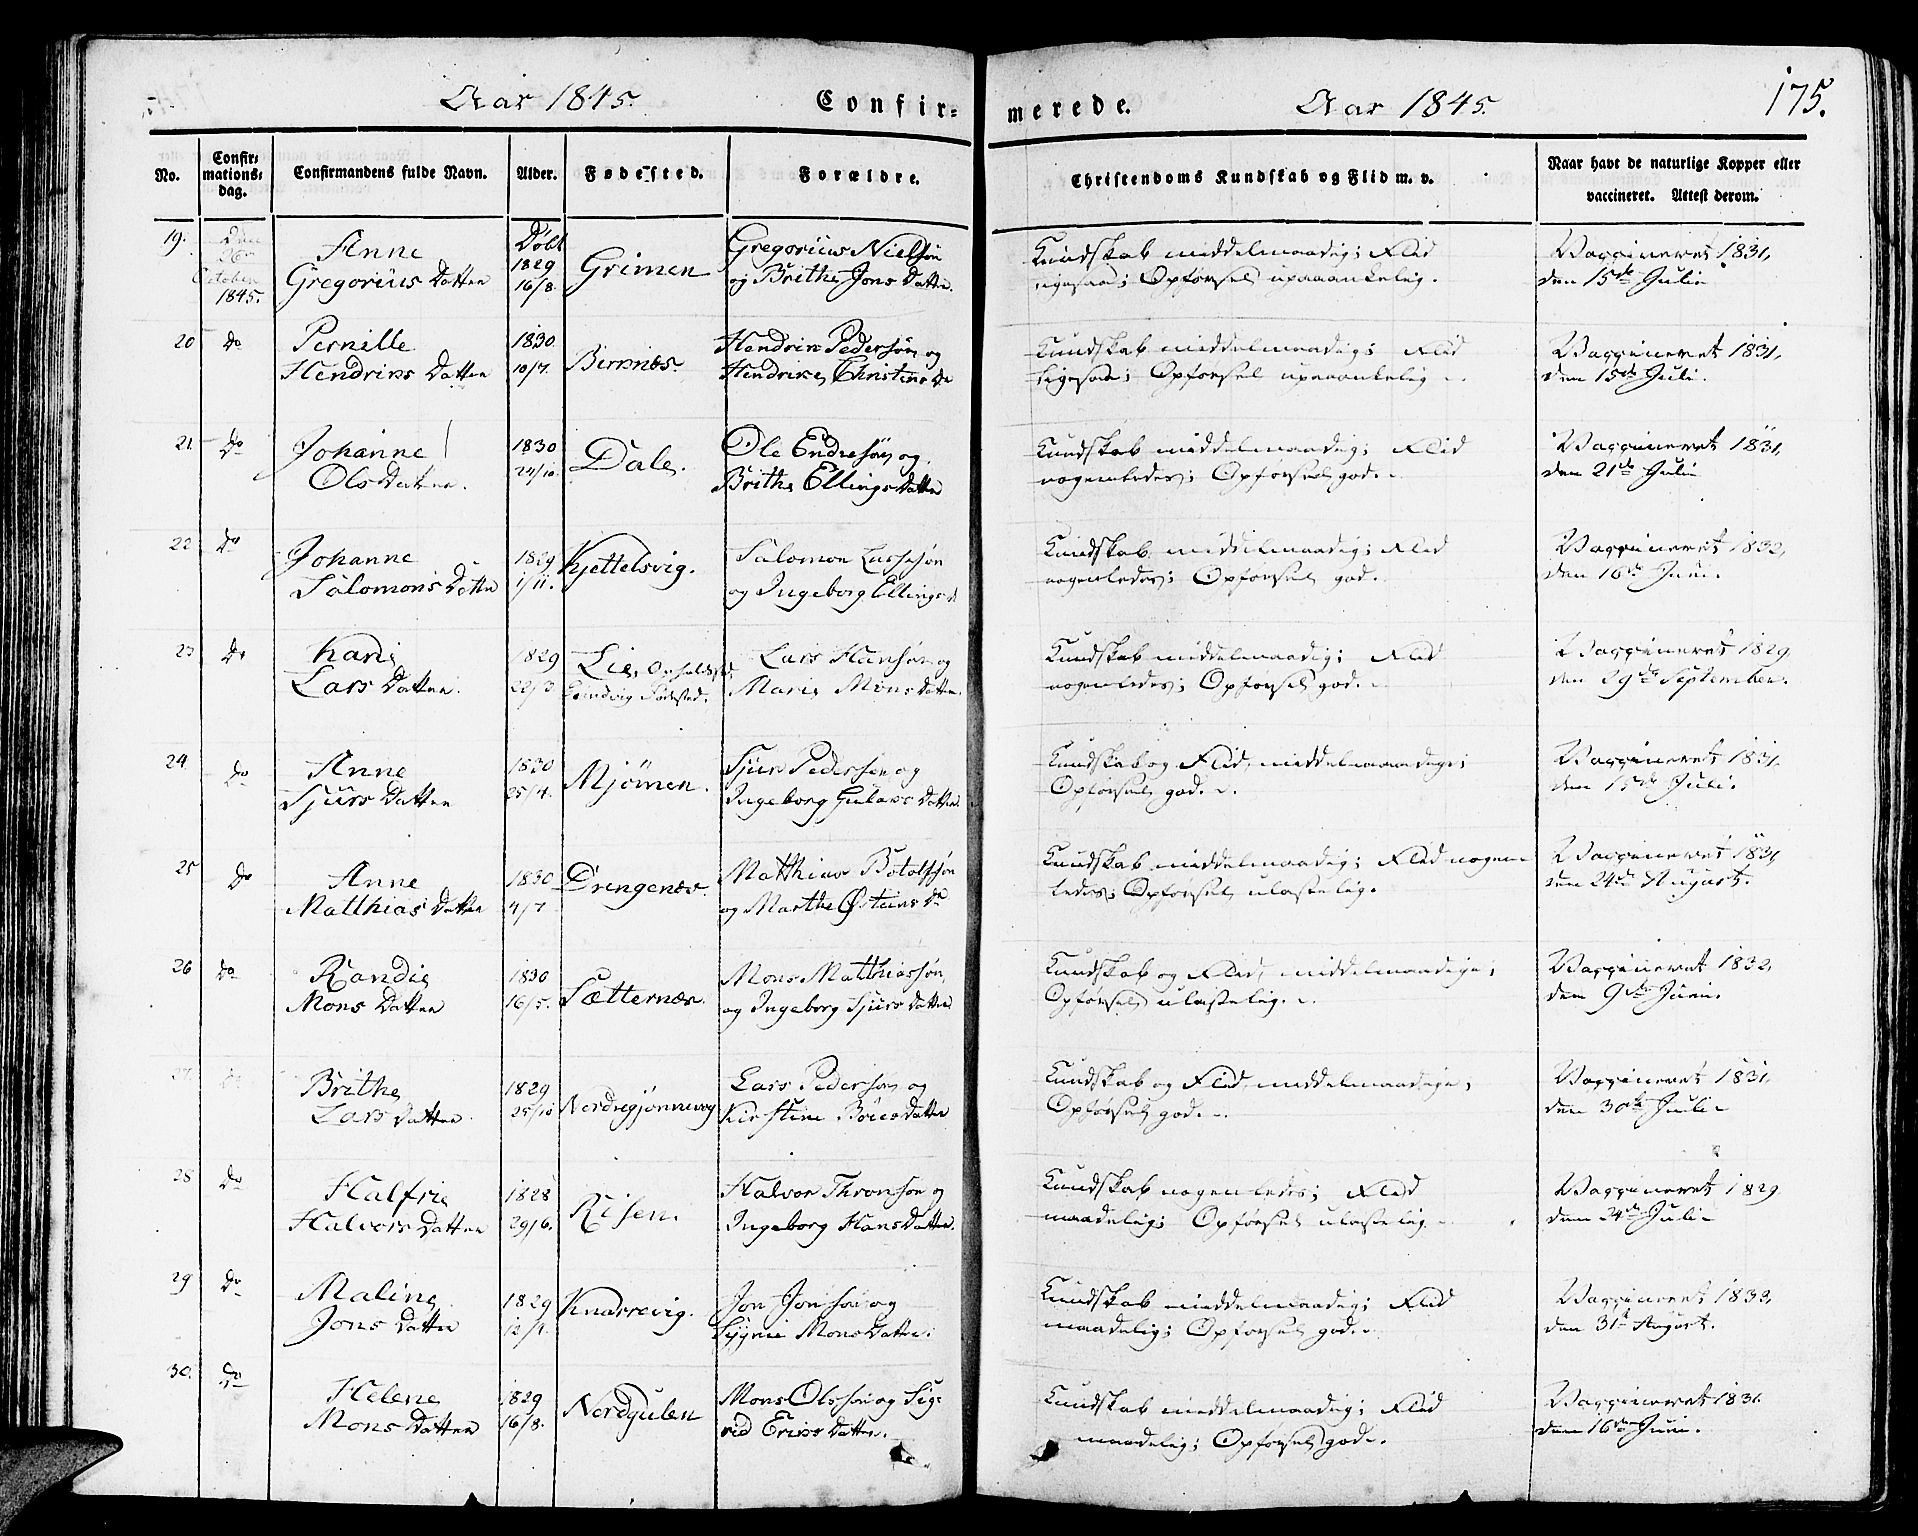 Aar 1845. Confir= merede. Aar 1845. 175.
No. Confir= mations= dag. Confirmandens fulde Navn. Alder. Fødested. Forældre. Christendoms Kundskab og Flid m. v. Naar havt de naturlige Kopper eller vaccineret. Attest derom.
19. Den October 1845. Anne Gregorius Datter Døbt 1829 16/8. Grimen Gregorius Nielsøn og Brithe Jons Datter. Kundskab middelmaadig; Flid ligesaa; Opførsel upaaankelig. Vaccineret 1831, den 15de Juli
20 Do Pernille Hendriks Datter 1830 10/7. Birknæs. Hendrik Pedersøn og Hendrike Christens Dr Kundskab middelmaadig; Flid ligesaa; Opførsel upaaankelig. Vaccineret 1831, den 15de Juli.
21. Do Johanne Ols Datter. 1830 24/10 Dale. Ole Endresøn og Brithe Ellings Datter Kundskab middelmaadig; Flid nogenledes; Opførsel god. Vaccineret 1831, den 21de Juli
22 Do Johanne Salomons Datter 1829 1/11. Kjettelsvig. Salomon Lassesøn og Ingeborg Ellings Kundskab middelmaadig; Flid nogenledes; Opførsel god. Vaccineret 1832, den 16de Juni.
23 Do Kari Lars Datter. 1829 22/3 Lie, Opholdssted, Fødested. Lars Hansøn og Mari Mons Datter. Kundskab middelmaadig; Flid nogenledes; Opførsel god. Vaccineret 1829 den 29de September.
24 Do Anne Sjurs Datter 1830 25/4. Mjømen. Sjur Pedersøn og Ingeborg Datter. Kundskab og Flid middelmaadige; Opførsel god. Vaccineret 1831, den 15de Juli.
25 Do Anne Matthias Datter 1830 4/7 Drengenæs. Matthias Botolfsøn og Marthe Østeins Dr Kundskab middelmaadig; Flid nogen ledes; Opførsel ulastelig. Vaccineret 1831 den 24de August.
26 Do Randi Mons Datter 1830 16/5. Sætternæs. Mons Matthiassøn, og Ingeborg Sjurs Datter Kundskab og Flid middelmaadige; Opførsel ulastelig. Vaccineret 1832, den 9de Juni.
27. Do Brithe Lars Datter. 1829 25/10 Nordregjønnevog Lars Pedersøn og Kirstine Böies Datter Kundskab og Flid middelmaadige; Opførsel god. Vaccineret 1831, den 30te Juli
28 Do Halfrie Halvors Datter 1828 29/6. Risen. Halvor Thronsøn og Ingeborg Hans Datter. Kundskab nogenledes; Flid maadelig; Opførsel ulastelig Vaccineret 1829 den 24de Juli
29 Do Maline Jons Datter 1829 12/1. Knarrevig. Jon Jonsøn og Mons Datter. Kundskab middelmaadig; Flid maadelig; Opførsel god. Vaccineret 1832, den 31te August.
30. Do Helene Mons Datter 1829 16/8. Nordgulen Mons Olssøn og Sig= rid Eriks Datter. Kundskab middelmaadig; Flid maadelig; Opførsel god. Vaccineret 1831. den 16de Juni.